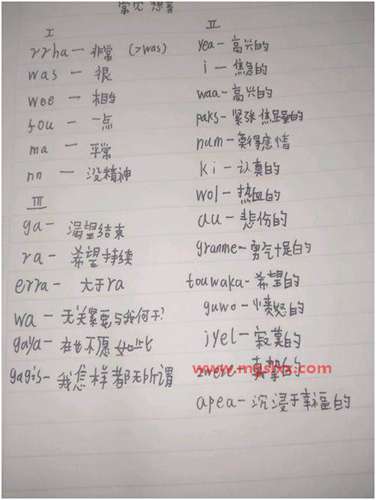 常见
I
rrha — 非常 (>was)
was — 很
wee — 相当
fou — 一点
ma — 平常
nn — 没精神
III
ga — 渴望结束
ra — 希望持续
erra — 大于ra
wa — 无关紧要与我何干?
gaya — 在也不愿如此
gagis — 我怎样都无所谓
II
yea - 高兴的
i - 焦急的
waa - 高兴的
paks - 紧张焦虑的
num - 莫得感情
ki - 认真的
wol - 热血的
au - 悲伤的
granme - 勇气十足的
touwaka - 希望的
guwo - 愤怒的
iyel - 寂寞的
真挚的
apea - 沉浸于幸福的